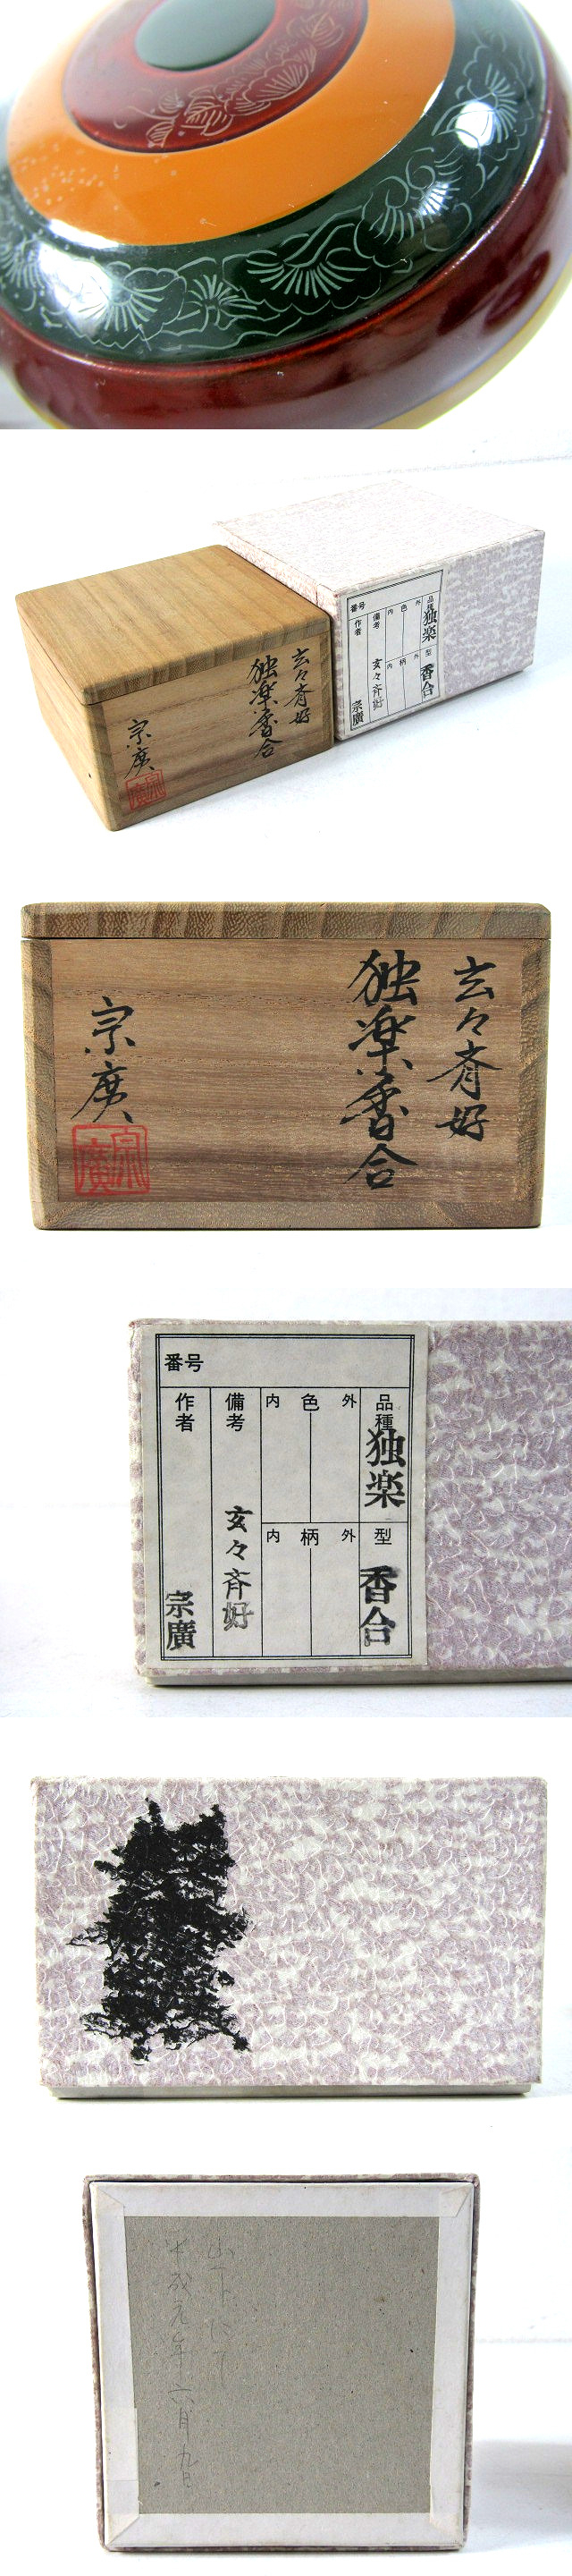 番号
品種
独楽
外
色
内
型
香合
外
柄
内
備考
玄々斉好
作者
宗廣
玄々斉好
独楽香合
宗廣
宗廣
玄々斉好
独楽香合
宗廣
宗廣
番号
品種
独楽
外
色
内
型
香合
外
柄
内
備考
玄々斉好
作者
宗廣
山下にて
平成元年六月九日